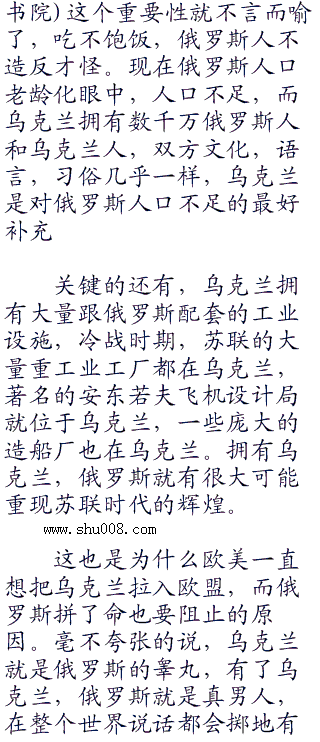 书院)这个重要性就不言而喻
了，吃不饱饭，俄罗斯人不
造反才怪。现在俄罗斯人口
老龄化眼中，人口不足，而
乌克兰拥有数千万俄罗斯人
和乌克兰人，双方文化，语
言，习俗几乎一样，乌克兰
是对俄罗斯人口不足的最好
补充
关键的还有，乌克兰拥
有大量跟俄罗斯配套的工业
设施，冷战时期，苏联的大
量重工业工厂都在乌克兰，
著名的安东若夫飞机设计局
就位于乌克兰，一些庞大的
造船厂也在乌克兰。拥有乌
克兰，俄罗斯就有很大可能
重现苏联时代的辉煌。
www.shu008.com
这也是为什么欧美一直
想把乌克兰拉入欧盟，而俄
罗斯拼了命也要阻止的原
因。毫不夸张的说，乌克兰
就是俄罗斯的睾丸，有了乌
克兰，俄罗斯就是真男人，
在整个世界说话都会掷地有